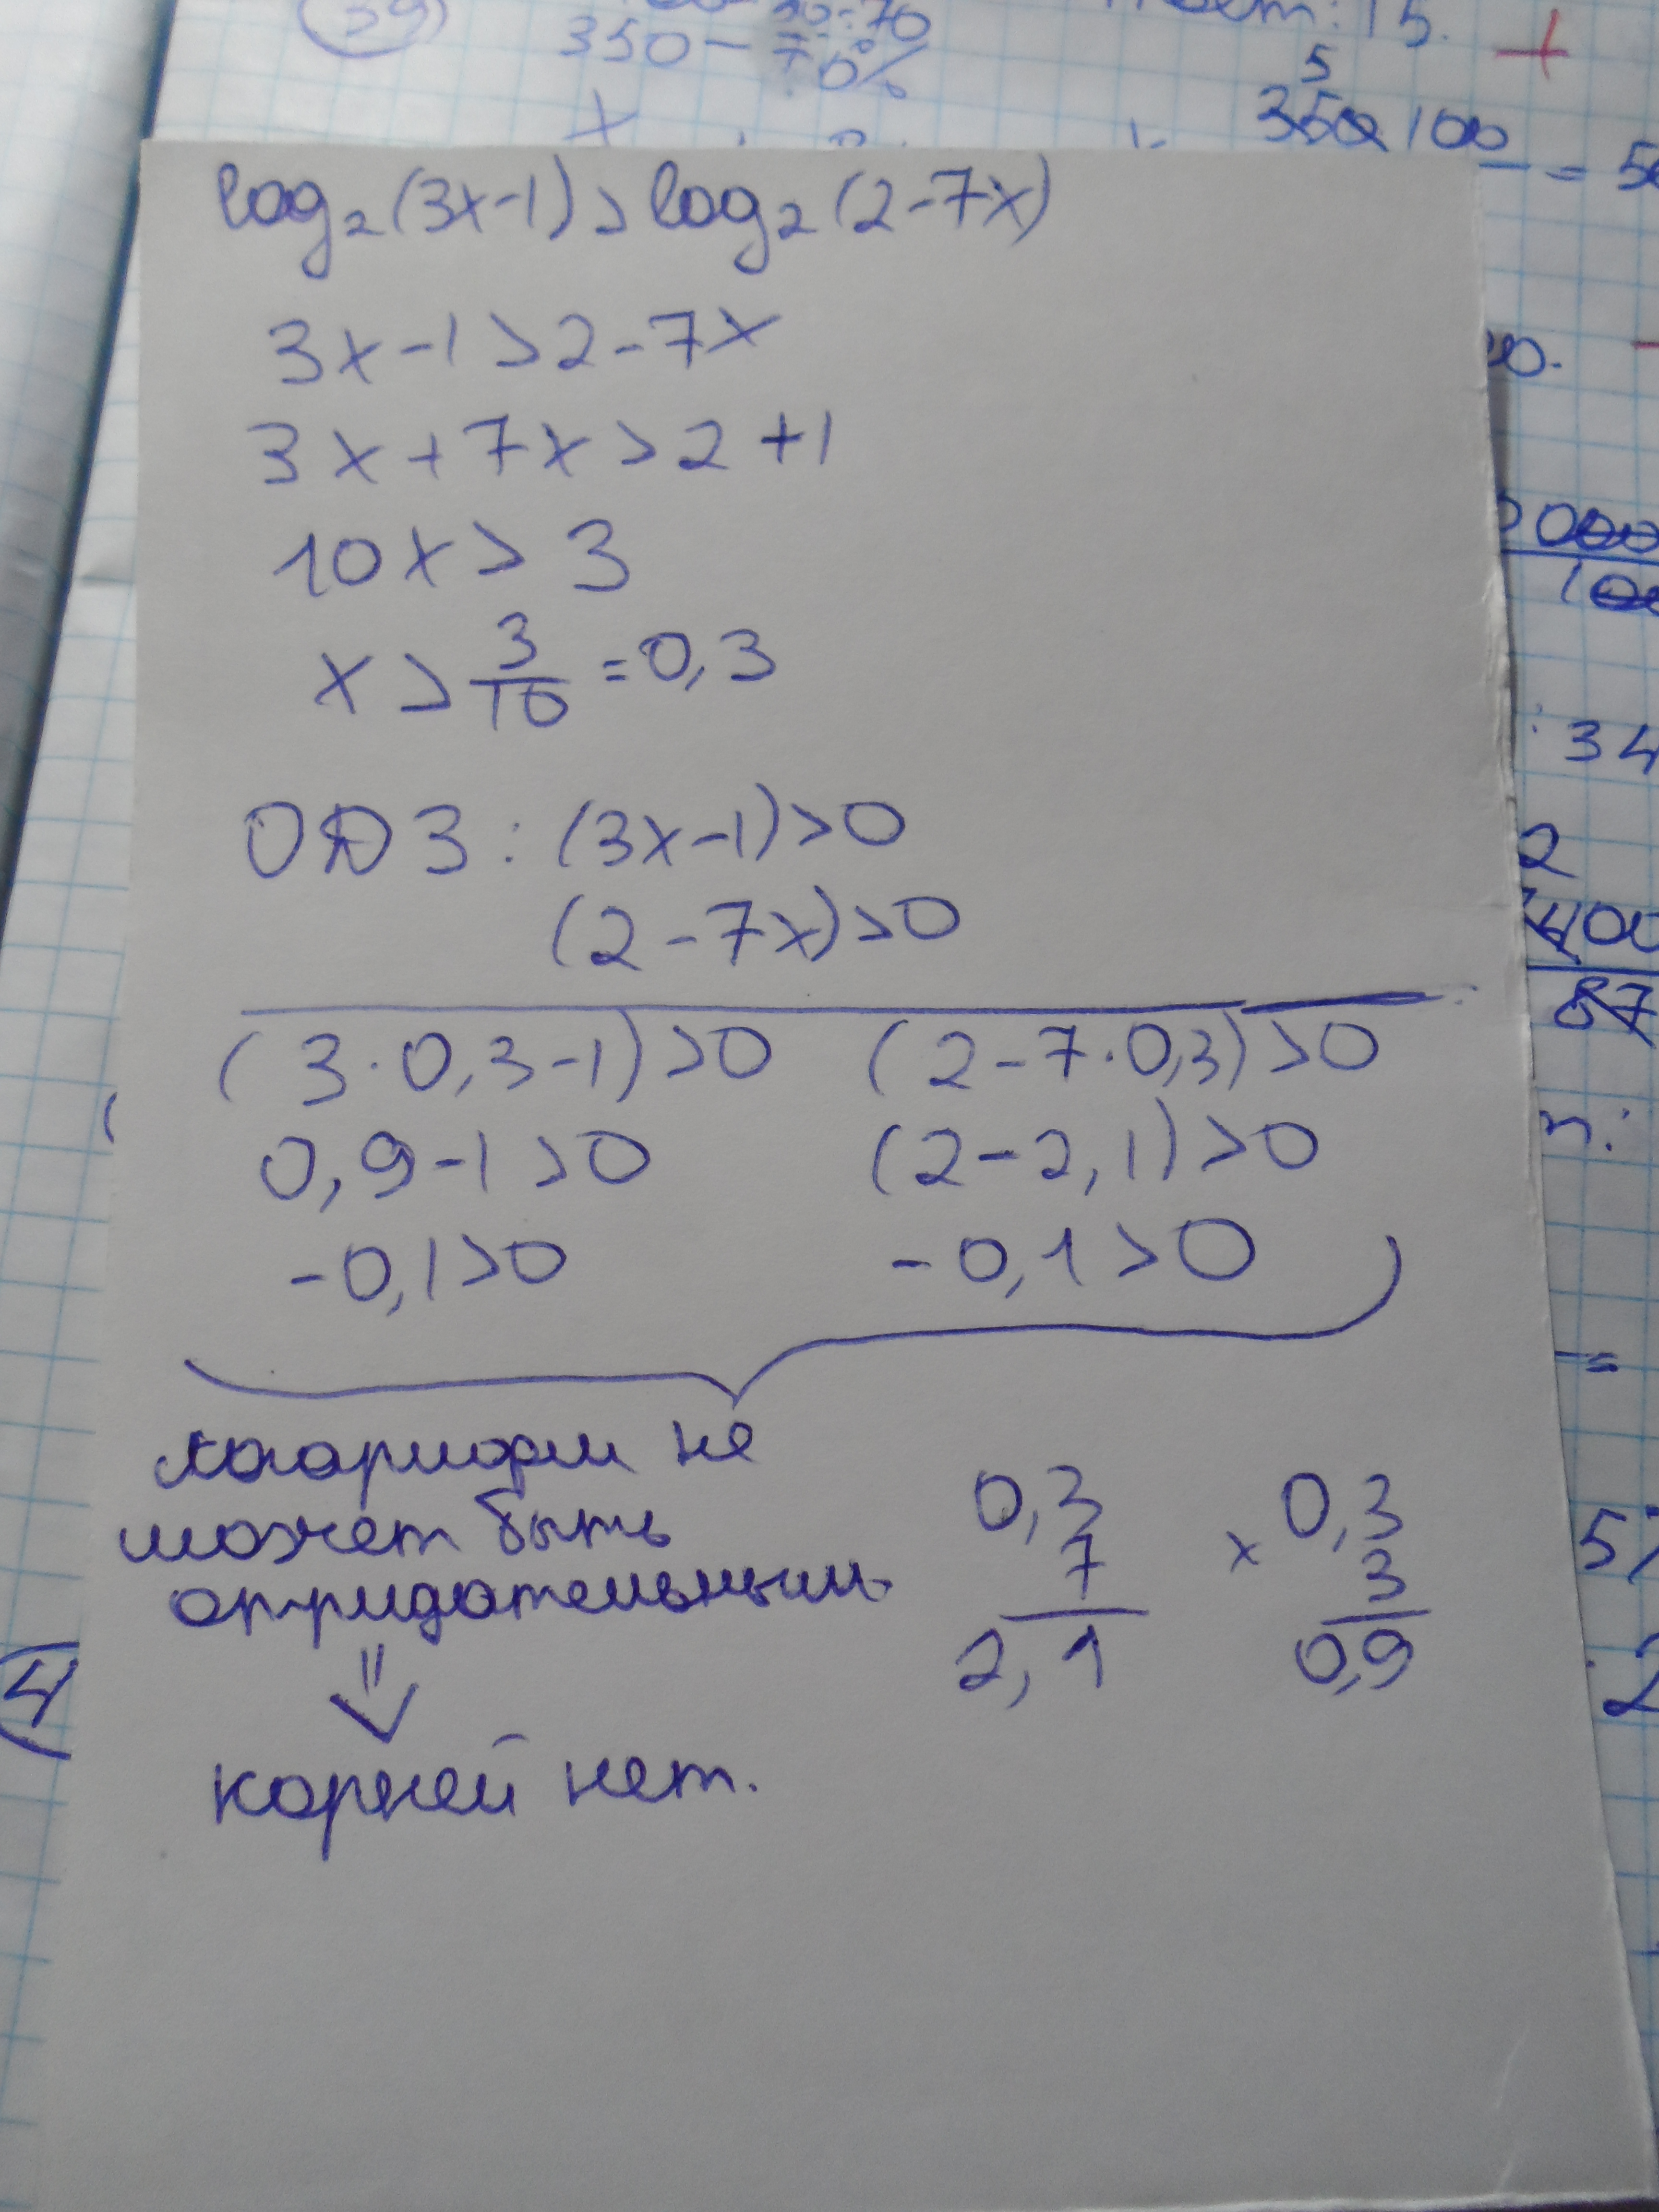 39
350 - 70%
x
5
350 100
= 50
log₂(3x-1)>log₂(2-7x)
3x-1>2-7x
3x+7x>2+1
10x>3
x>3/10=0,3
ОДЗ: (3x-1)>0
(2-7x)>0
(3·0,3-1)>0 (2-7·0,3)>0
0,9-1>0 (2-2,1)>0
-0,1>0 -0,1>0
логарифм не
может быть
отрицательным
0,3 × 0,3
7 3
2,1 0,9
⇓
корней нет.
34
2
87
4